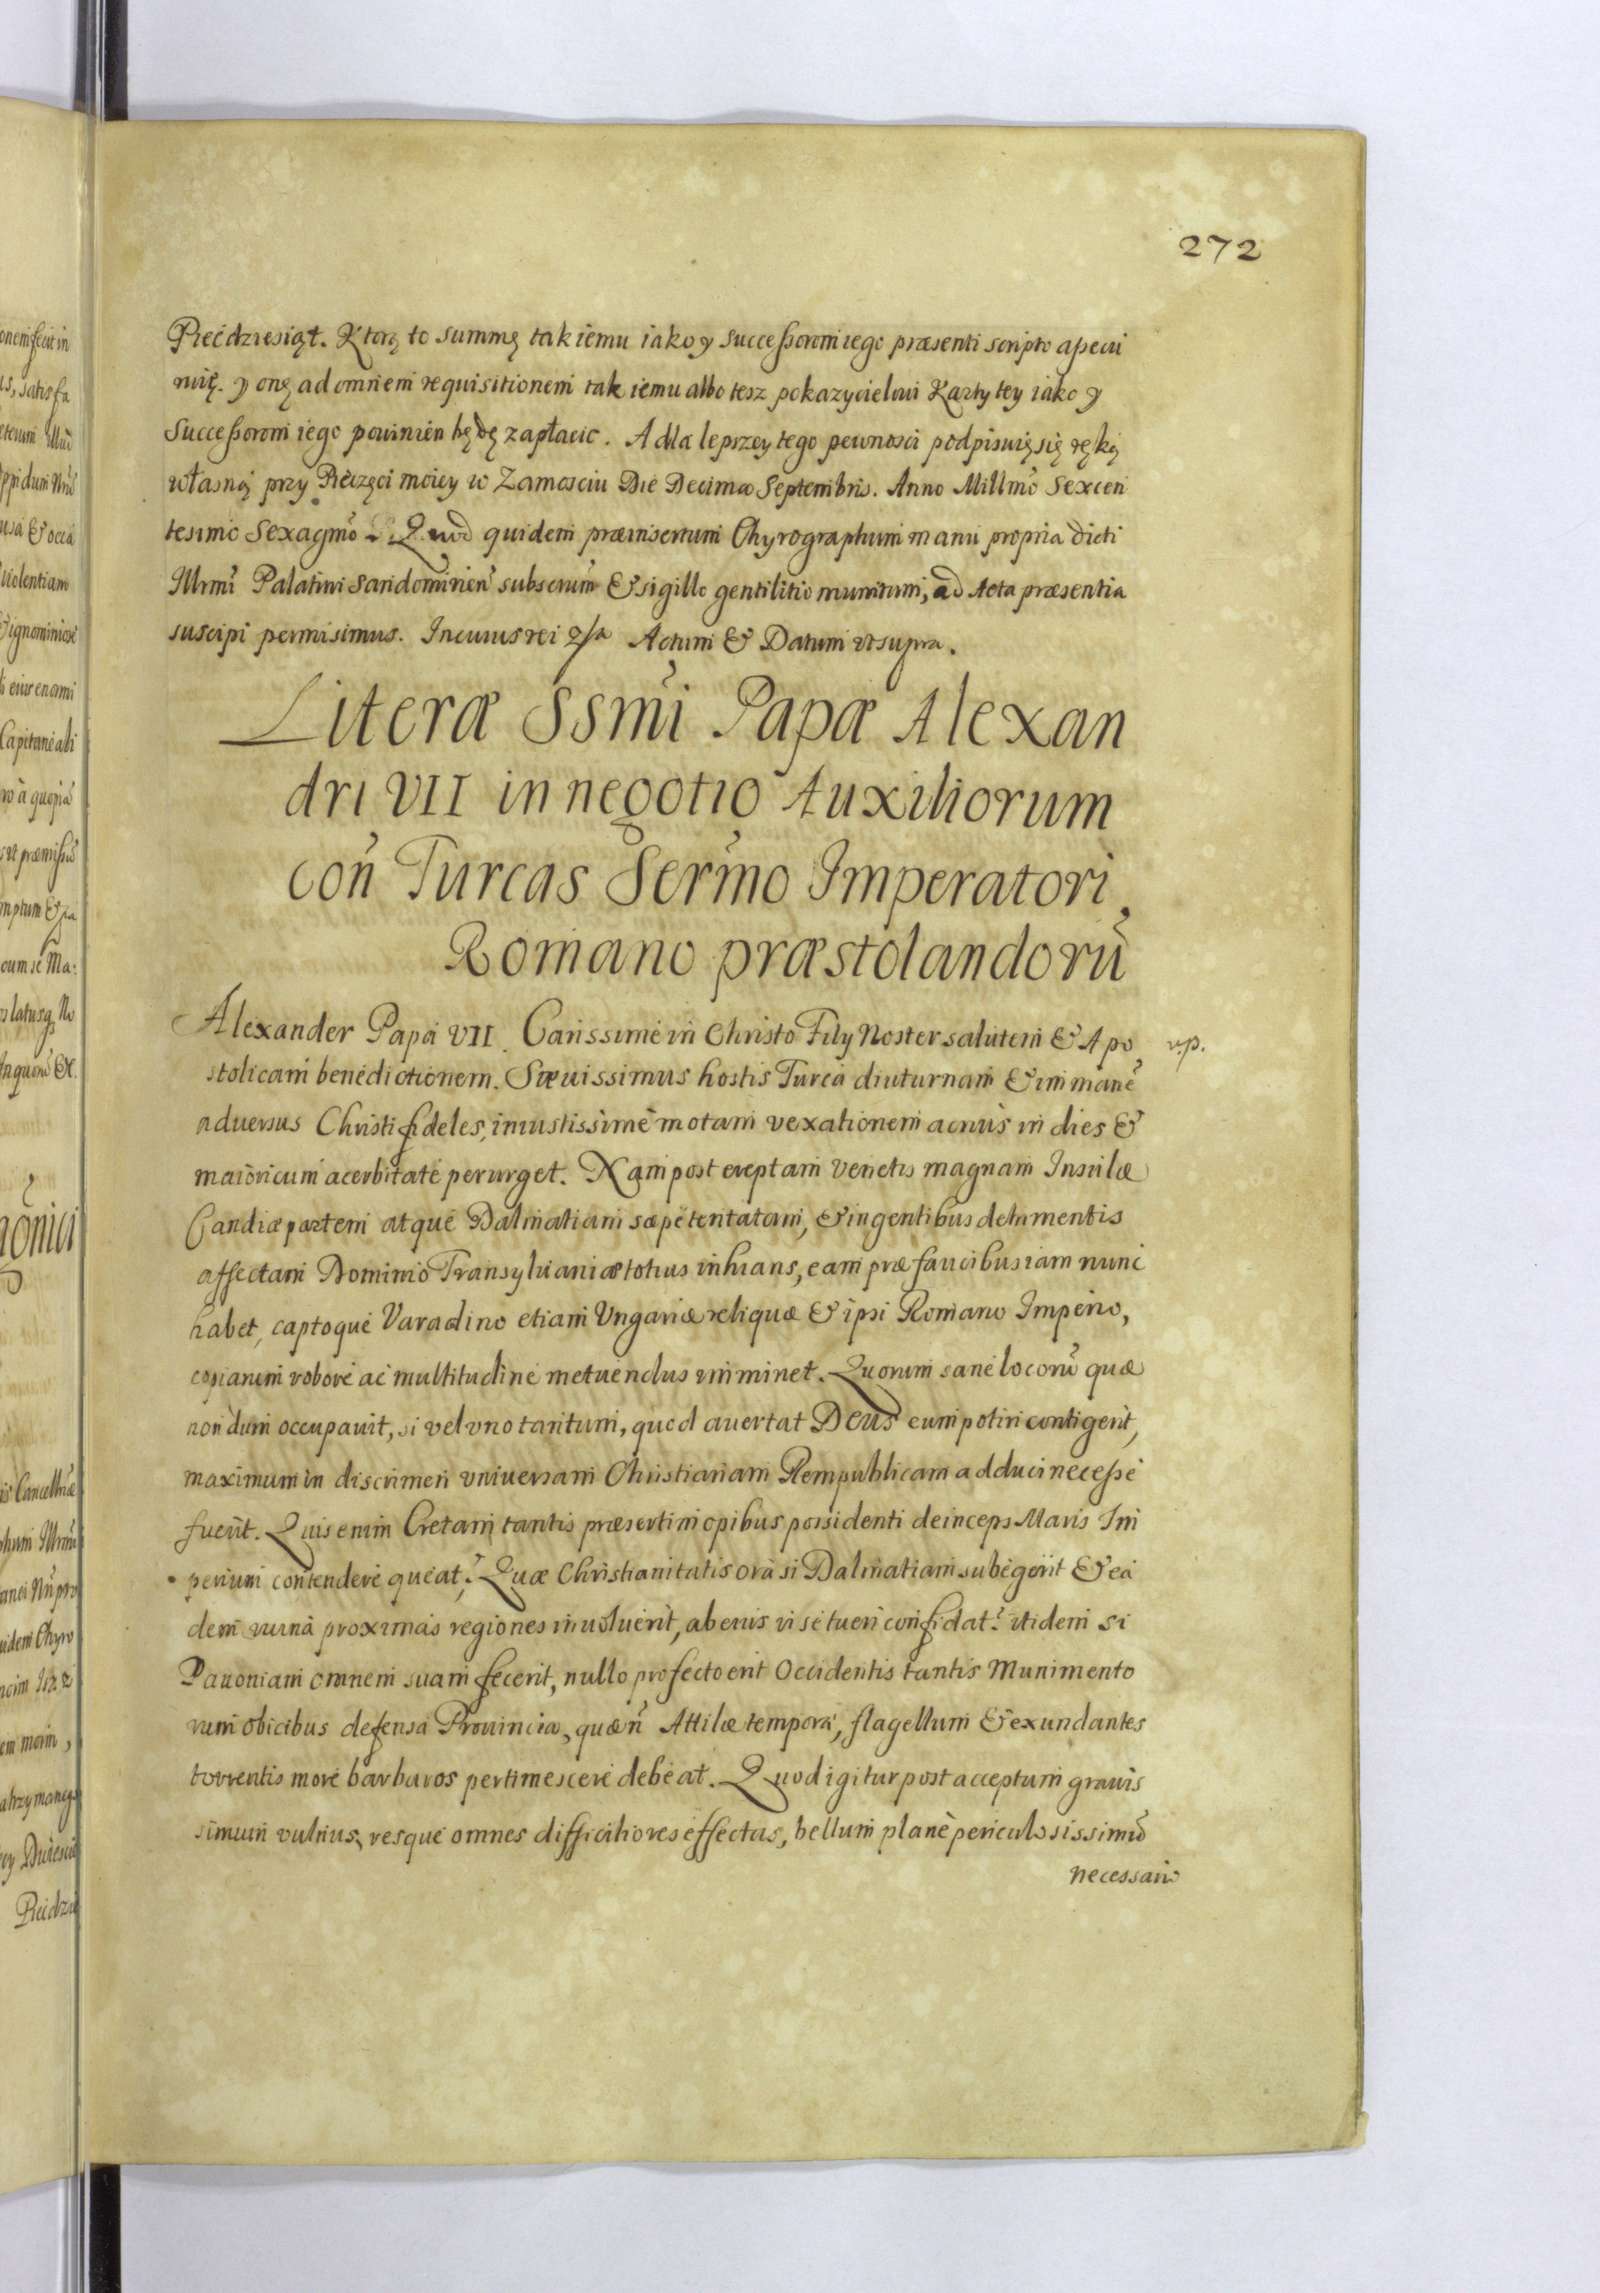 272
Pięćdziesiąt. Ktorą to summę tak iemu iako y Successorom iego præsenti scripto assecu
ruię. y onę ad omnem requisitionem tak iemu albo tesz pokazycielowi Karty tey iako y
Successorom iego powinien będę zapłacic. A dla lepszey tego pewnosci podpisuię się ręką
własną przy Pieczęci moiey w Zamosciu Die Decima Septembris. Anno Millmo Sexcen
tesimo Sexagmo Quod quidem præinsertum Chyrographum manu propria dicti
Illrmi Palatini Sandomirien subscrum & sigillo gentilitio munitum, ad Acta præsentia
suscipi permisimus. In cuius rei Actum & Datum ut supra.
Literæ Ssmi Papæ Alexan
dri VII in negotio Auxiliorum
con Turcas Sermo Imperatori
Romano præstolandorū
Alexander Papa VII. Carissime in Christo Fily Noster salutem & Apo
v.p.
stolicam benedictionem. Sæuissimus hostis Turca diuturnam & immanē
aduersus Christi fideles, iniustissimè motam vexationem acriùs in dies &
maiori cum acerbitate perurget. Nam post ereptam Venetis magnam Insulæ
Candiæ partem atque Dalmatiam sæpè tentatam, & ingentibus detrimentis
affectam Dominio Transyluaniæ totius inhians, eam præ faucibus iam nunc
habet, captoque Varadino etiam Vngariæ reliquæ & ipsi Romano Imperio,
copiarum robore ac multitudine metuendus imminet. Quorum sanè locorū quæ
nondum occupauit, si vel vno tantum, quod auertat Deus eum potiri contigerit,
maximum in discrimen vniuersam Christianam Rempublicam adduci necesse
fuerit. Quis enim Cretam tantis præsertim opibus possidenti deinceps Maris Im
perium contendere queat? Quæ Christianitatis ora si Dalmatiam subegerit & ea
dem ruina proximas regiones inuoluerit, ab eius vi se tueri confidat? itidem si
Panoniam omnem suam fecerit, nullo profecto erit Occidentis tantis Munimento
rum obicibus defensa Prouincia, quæ ñ Attilæ tempora, flagellum & exundantes
torrentis more barbaros pertimescere debeat. Quod igitur post acceptum grauis
simum vulnus, resque omnes difficiliores effectas, bellum planè periculosissimū
necessario